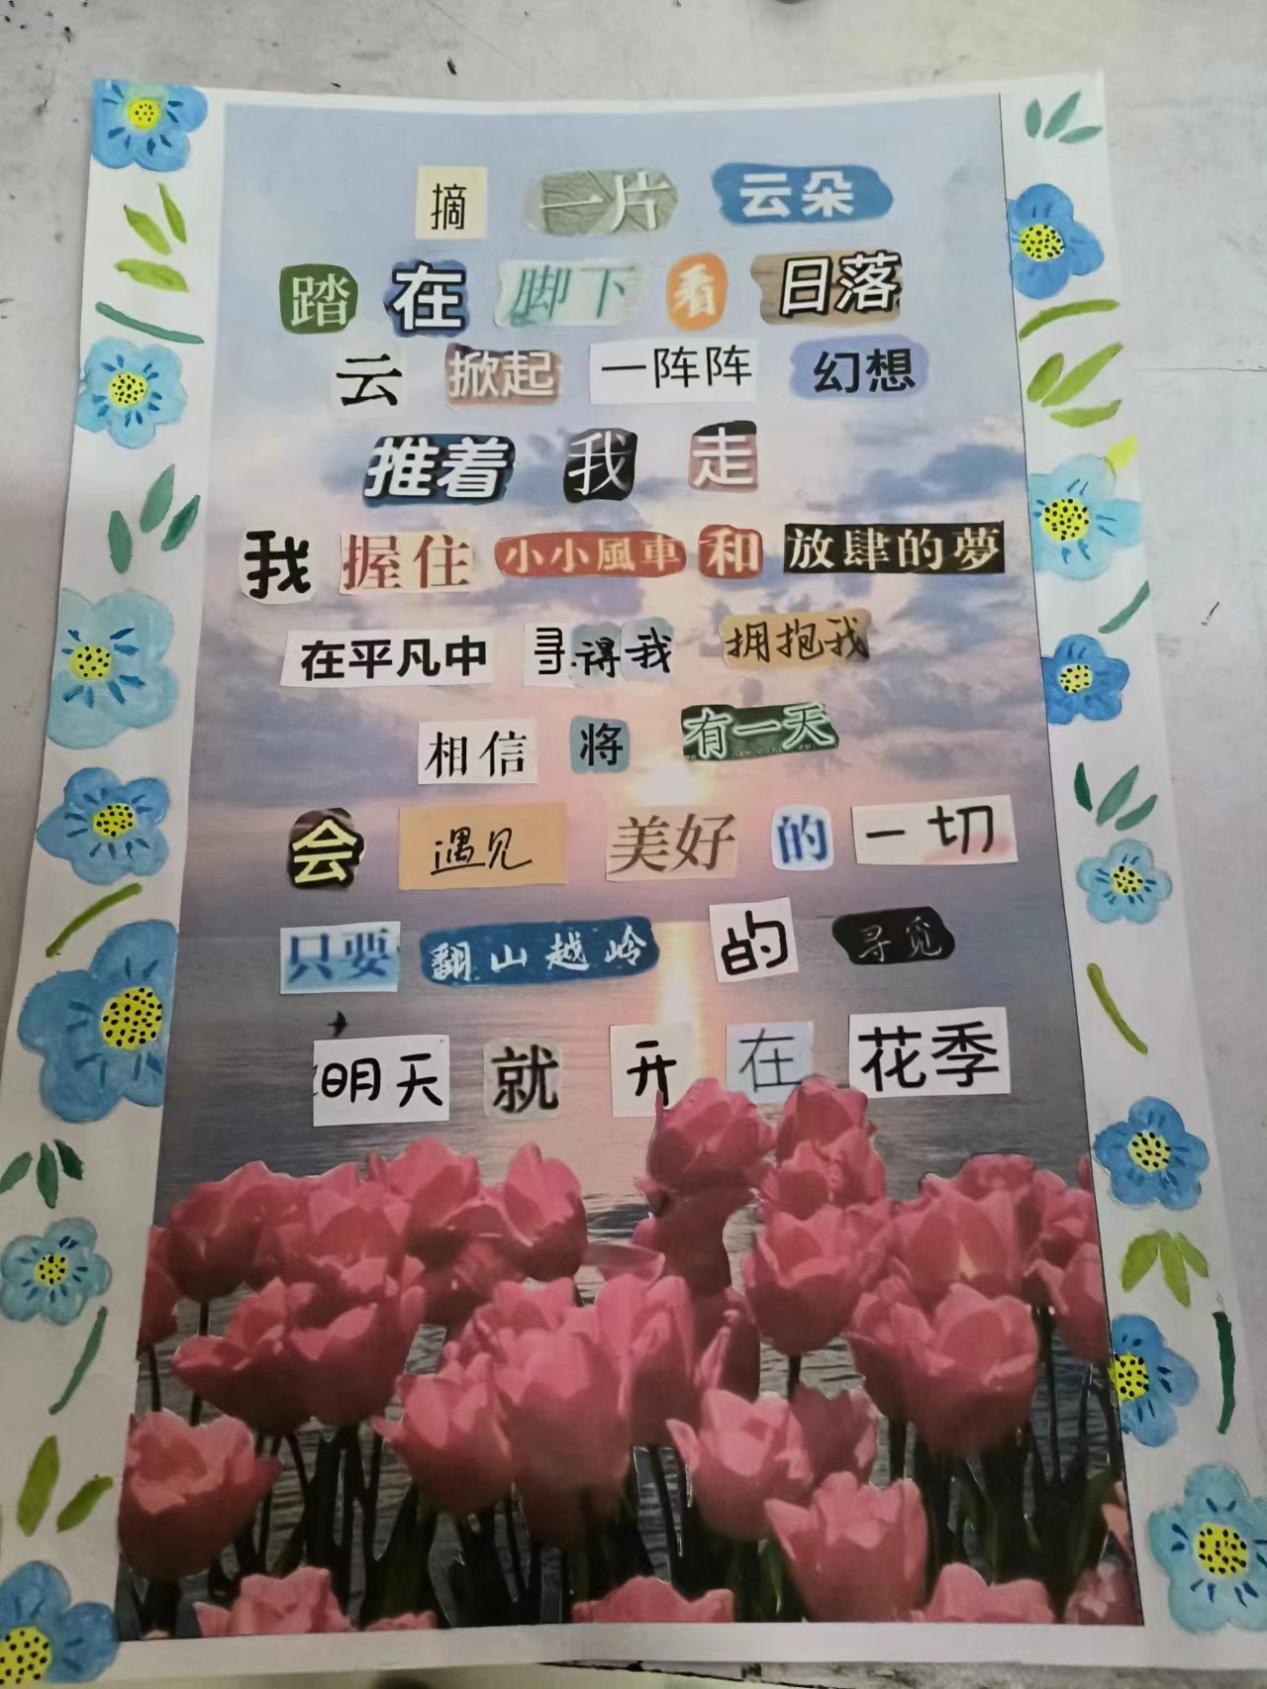 摘 一片 云朵
踏 在 脚下 看 日落
云 掀起 一阵阵 幻想
推着 我 走
我 握住 小小風車 和 放肆的夢
在平凡中 寻得我 拥抱我
相信 将 有一天
会 遇见 美好 的 一切
只要 翻山越岭 的 寻觅
明天 就 开 在 花季